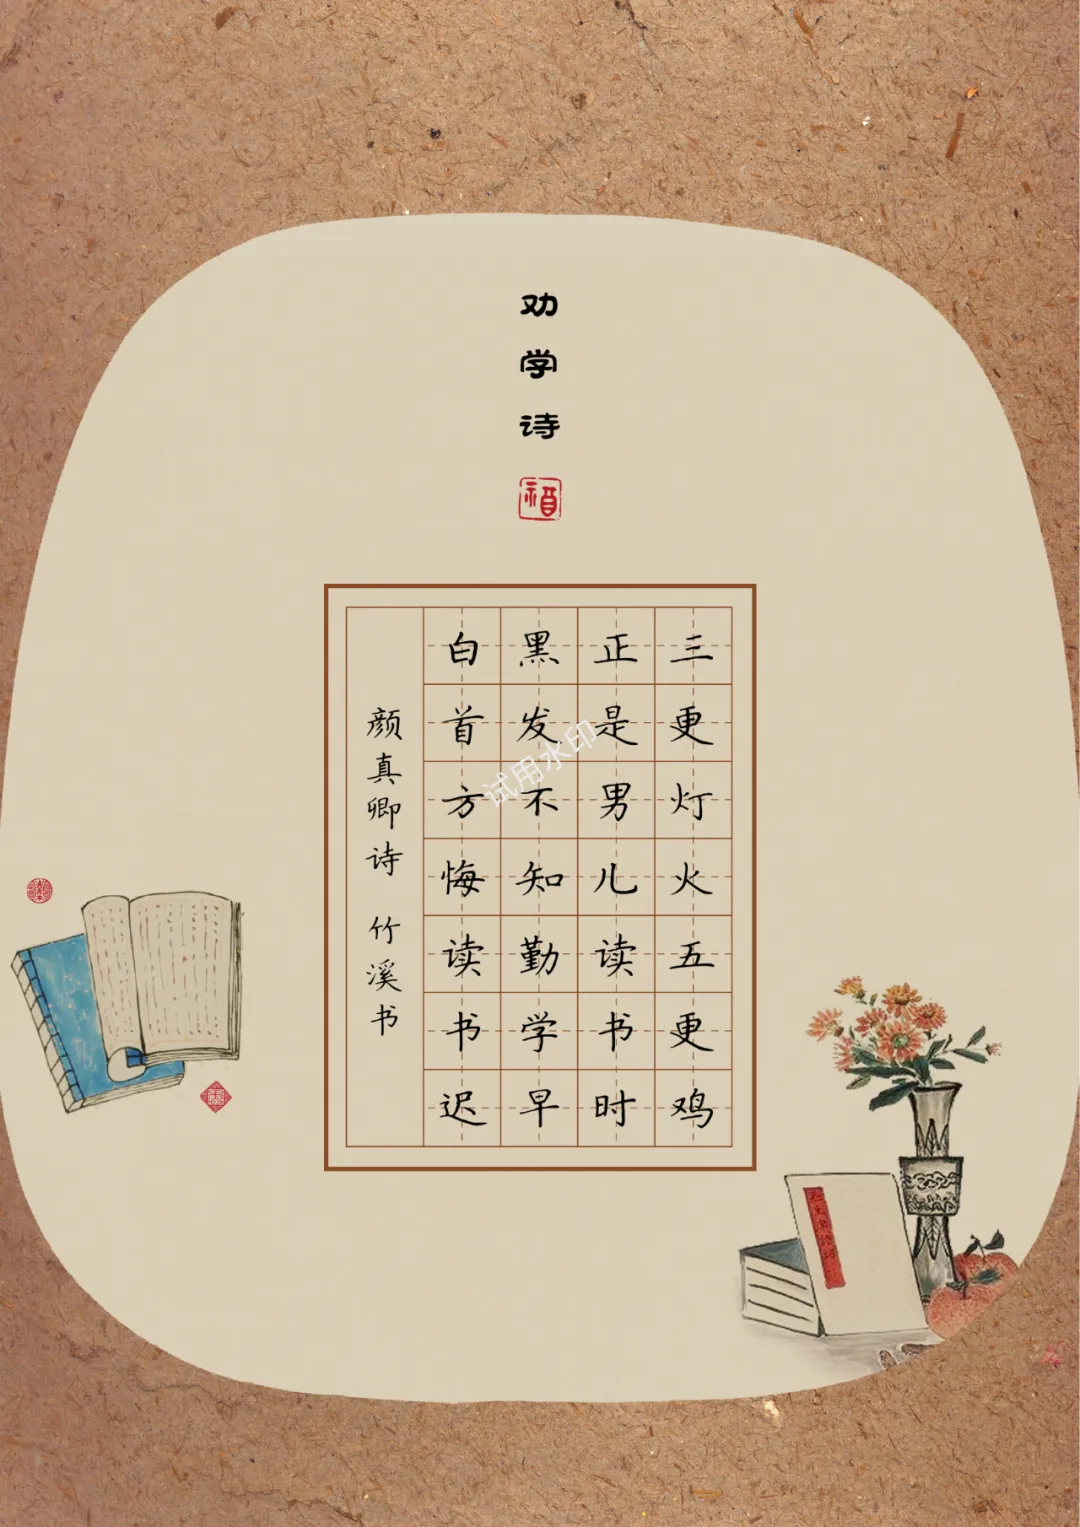 劝学诗
三更灯火五更鸡
正是男儿读书时
黑发不知勤学早
白首方悔读书迟
颜真卿诗 竹溪书
试用水印